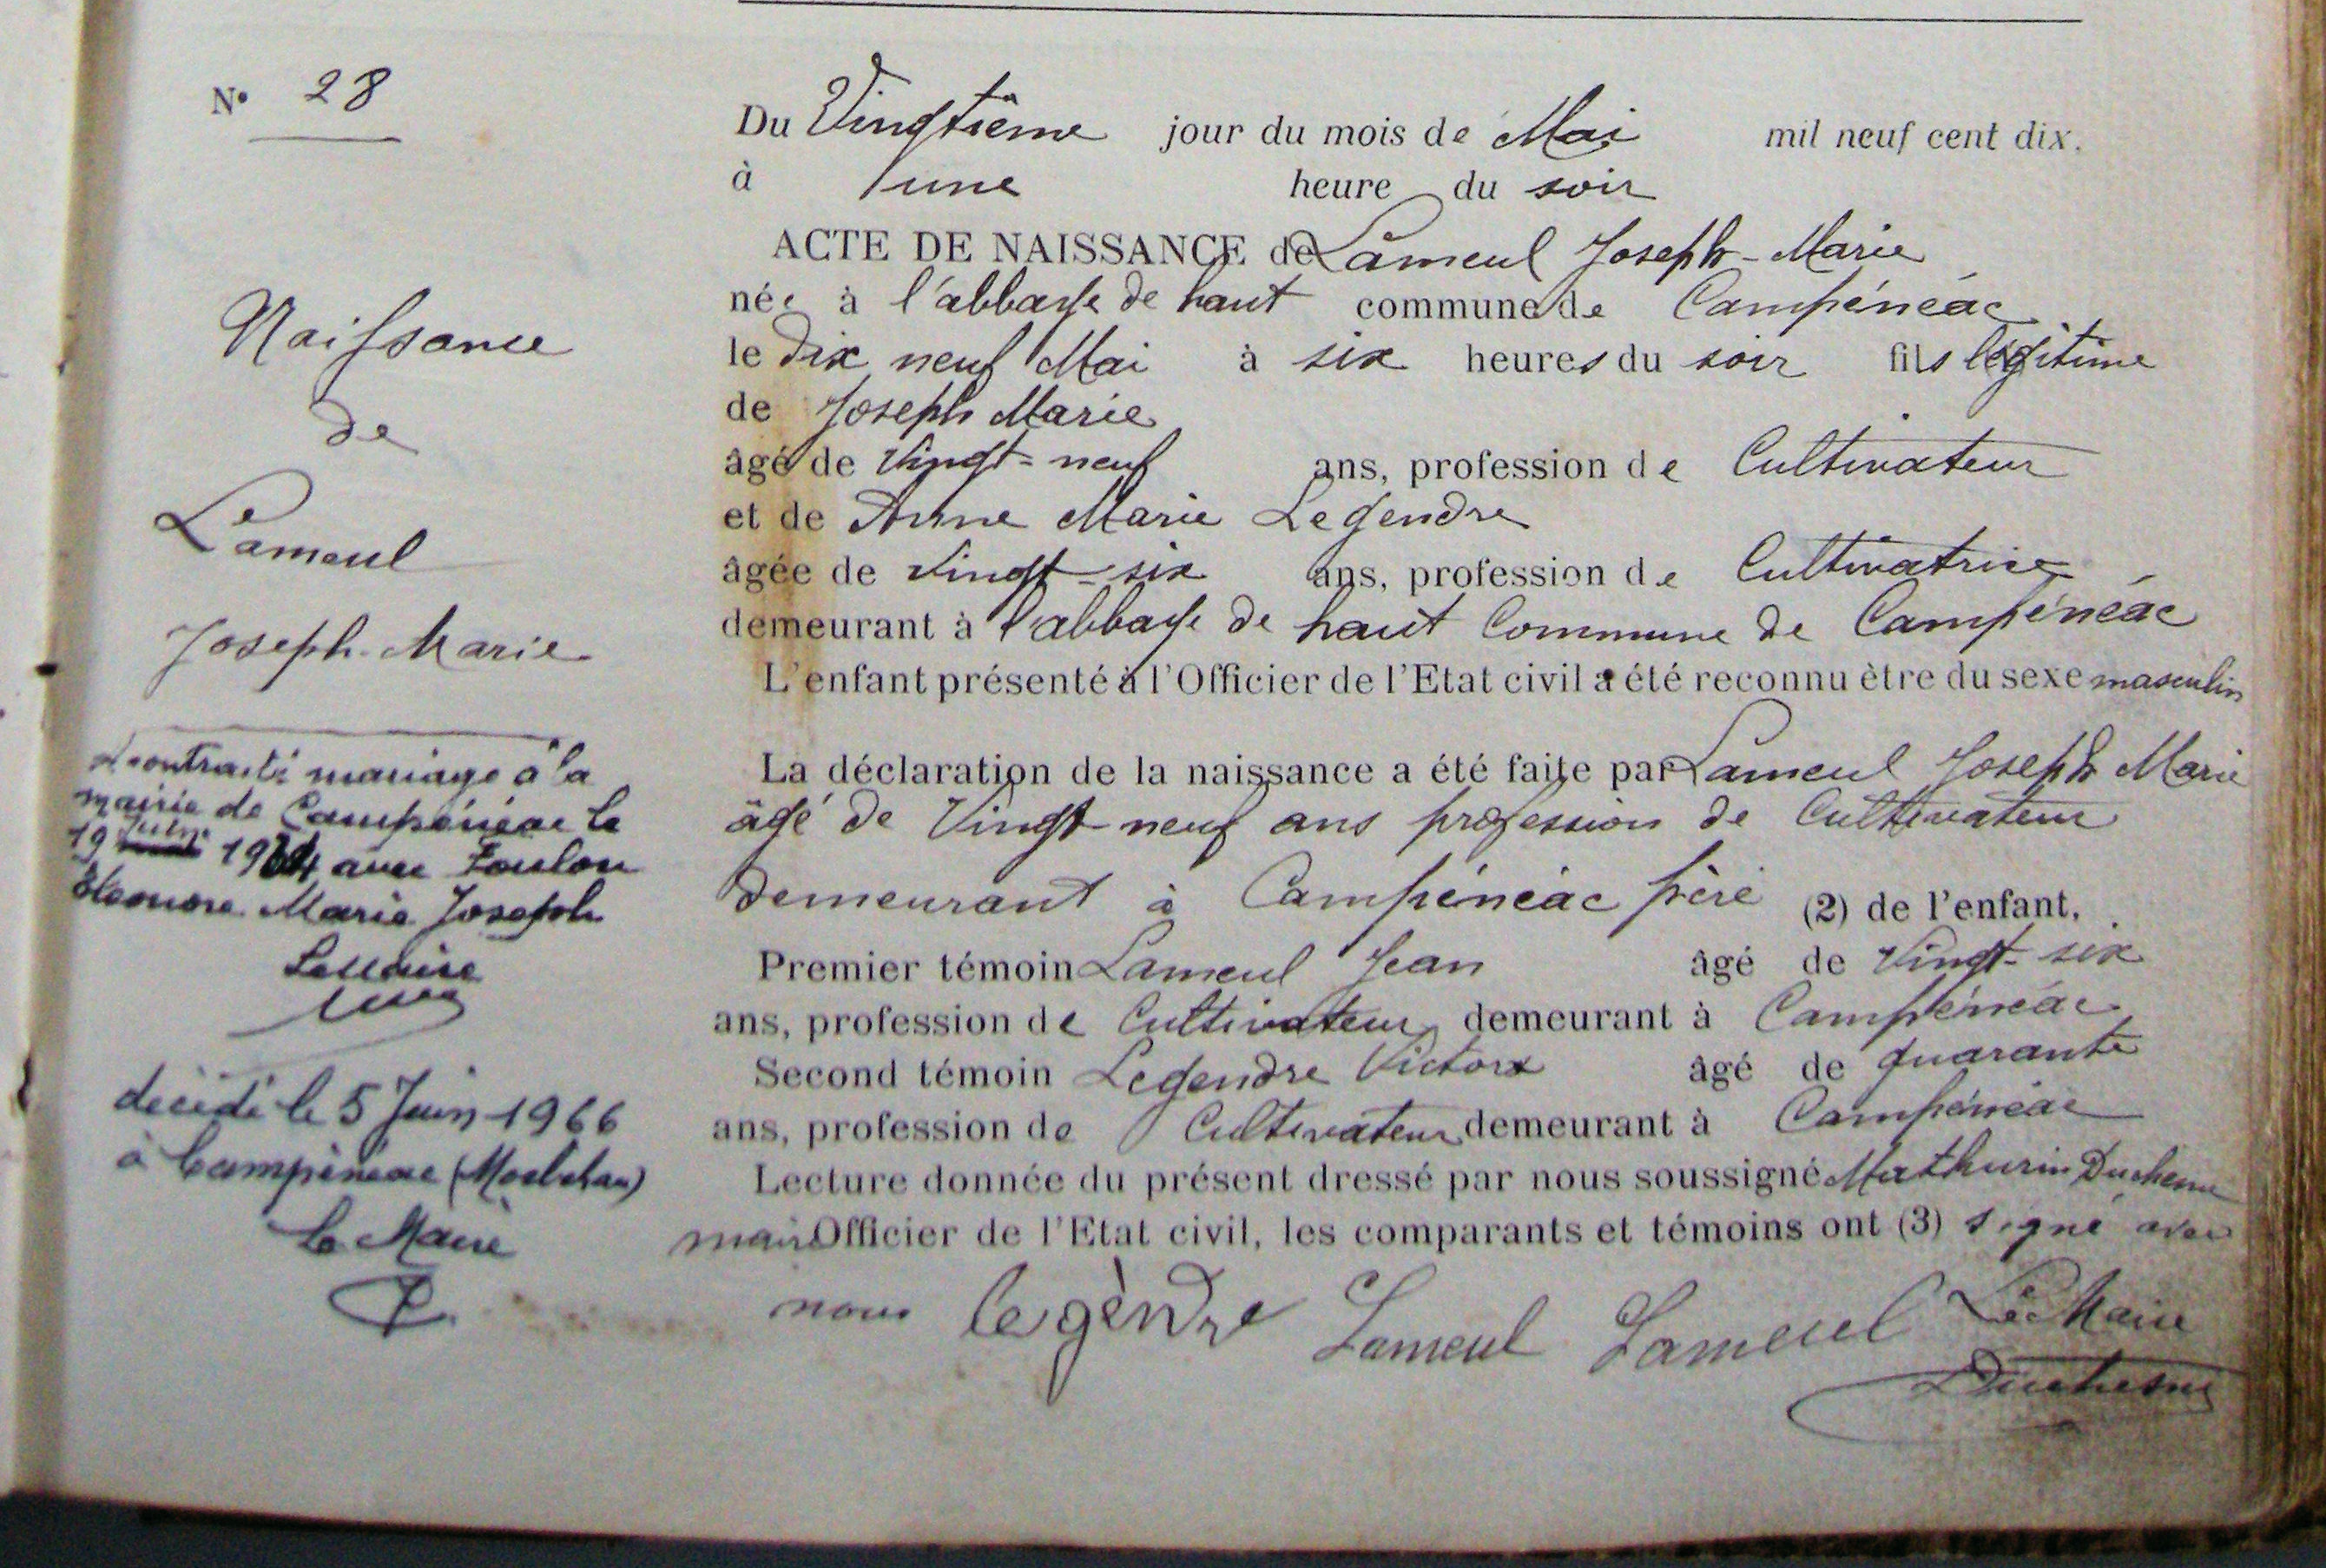 N° 28
Naissance
de
Lameul
Joseph-Marie
A contracté mariage à la
mairie de Campénéac le
19 juin 1934 avec Foulon
Eléonore Marie Joseph
Le Maire
décédé le 5 Juin 1966
à Campénéac (Morbihan)
Le Maire
Du Vingtième jour du mois de Mai mil neuf cent dix.
à une heure du soir
ACTE DE NAISSANCE de Lameul Joseph-Marie
née à l'abbaye de haut commune de Campénéac
le dix neuf Mai à six heures du soir fils légitime
de Joseph Marie
âgé de Vingt-neuf ans, profession de Cultivateur
et de Anne Marie Legendre
âgée de Vingt-six ans, profession de Cultivatrice
demeurant à l'abbaye de haut Commune de Campénéac
L'enfant présenté à l'Officier de l'Etat civil a été reconnu être du sexe masculin
La déclaration de la naissance a été faite par Lameul Joseph Marie
âgé de Vingt-neuf ans profession de Cultivateur
demeurant à Campénéac père (2) de l'enfant,
Premier témoin Lameul Jean âgé de Vingt-six
ans, profession de Cultivateur demeurant à Campénéac
Second témoin Legendre Victor âgé de quarante
ans, profession de Cultivateur demeurant à Campénéac
Lecture donnée du présent dressé par nous soussigné Mathurin Duchesne
maire Officier de l'Etat civil, les comparants et témoins ont (3) signé avec
nous legèndre Lameul Lameul Le Maire
Duchesne